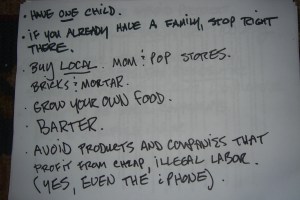 • HAVE ONE CHILD.
• IF YOU ALREADY HAVE A FAMILY, STOP RIGHT
THERE.
• BUY LOCAL. MOM & POP STORES.
BRICKS & MORTAR.
• GROW YOUR OWN FOOD.
• BARTER.
• AVOID PRODUCTS AND COMPANIES THAT
PROFIT FROM CHEAP, ILLEGAL LABOR.
(YES, EVEN THE iPHONE).